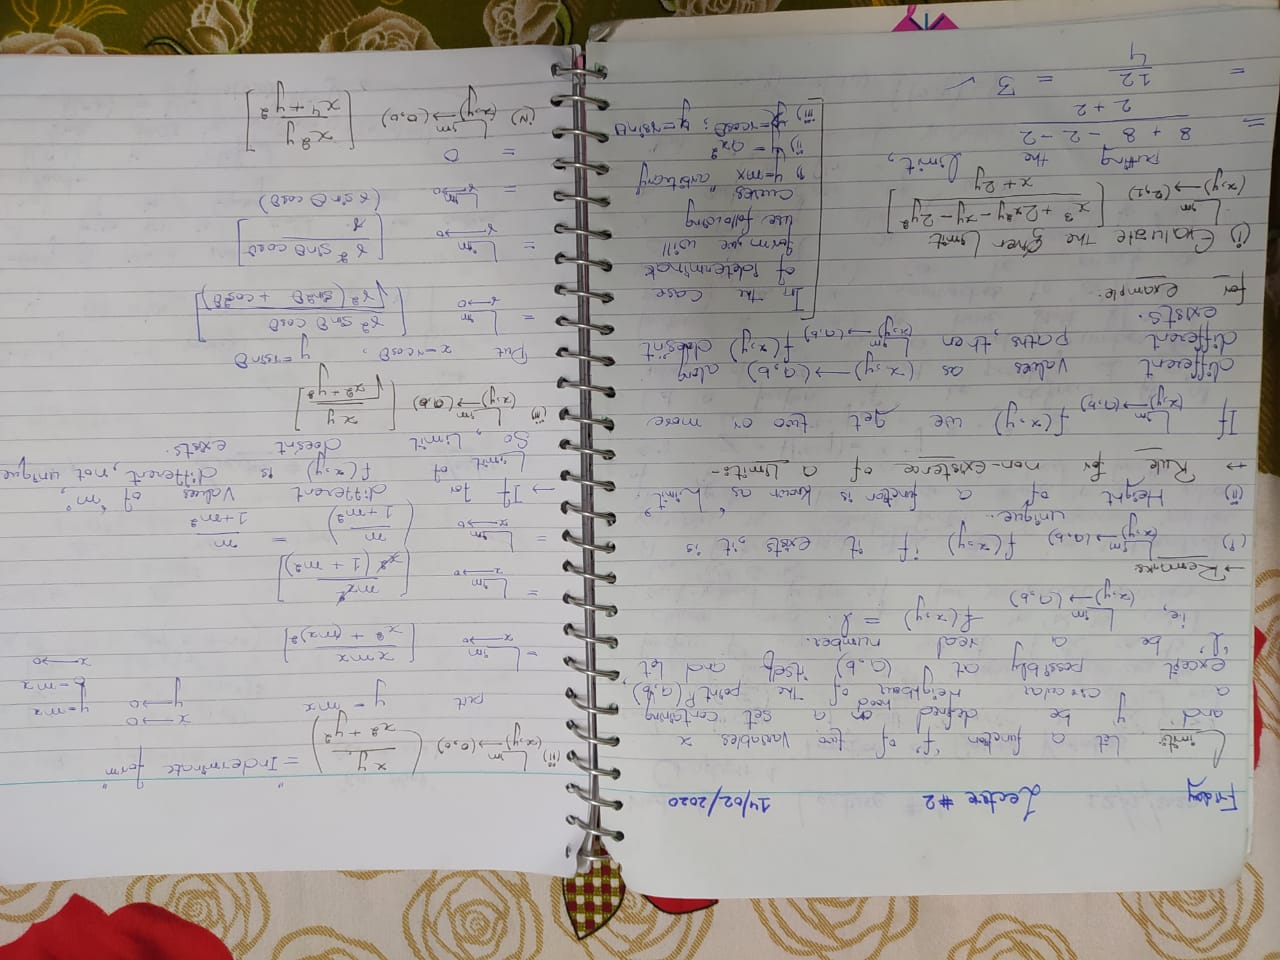 Friday Lecture #2 14/02/2020
Limit:- Let a function 'f' of two variables x
and y be defined on a set containing
a circular neighbourhood of the point P(a,b),
except possibly at (a,b) itself and let
'l' be a real number.
ie, Lim (x,y)→(a,b) f(x,y) = l.
→ Remarks:
(i) Lim (x,y)→(a,b) f(x,y) if it exists, it is
unique.
(ii) Height of a function is known as "Limit".
↔ Rule for non-existence of a Limit:-
If Lim (x,y)→(a,b) f(x,y) we get two or more
different values as (x,y)→(a,b) along
different paths, then Lim (x,y)→(a,b) f(x,y) does'nt
exists.
for example.
(i) Evaluate the given Limit
Lim (x,y)→(2,1) [x³ + 2x²y - xy - 2y² / x + 2y]
putting the limit,
= 8 + 8 - 2 - 2 / 2 + 2
= 12 / 4 = 3 ✓
In the case
of ideterminate
form, we will
use following
curves
i) y=mx "arbitrary"
ii) y = ax²
iii) x=rcosθ; y=rsinθ
(ii) Lim (x,y)→(0,0) (xy / x² + y²) = "Inderminate form"
put y = mx x→0 y→0 y=mx 0=mx x→0
= Lim x→0 [xmx / x² + (mx)²]
= Lim x→0 [mx² / x²(1 + m²)]
= Lim x→0 (m / 1+m²) = m / 1+m²
→ If for different values of 'm',
Limit of f(x,y) is different, not unique
So, Limit does'nt exists.
(iii) Lim (x,y)→(a,b) [xy / √x²+y²]
Put x=rcosθ, y=rsinθ
= Lim r→0 [r² sinθ cosθ / √r²(sin²θ + cos²θ)]
= Lim r→0 [r² sinθ cosθ / r]
= Lim r→0 (r sinθ cosθ)
= 0
(iv) Lim (x,y)→(0,0) [x²y / x⁴+y²]